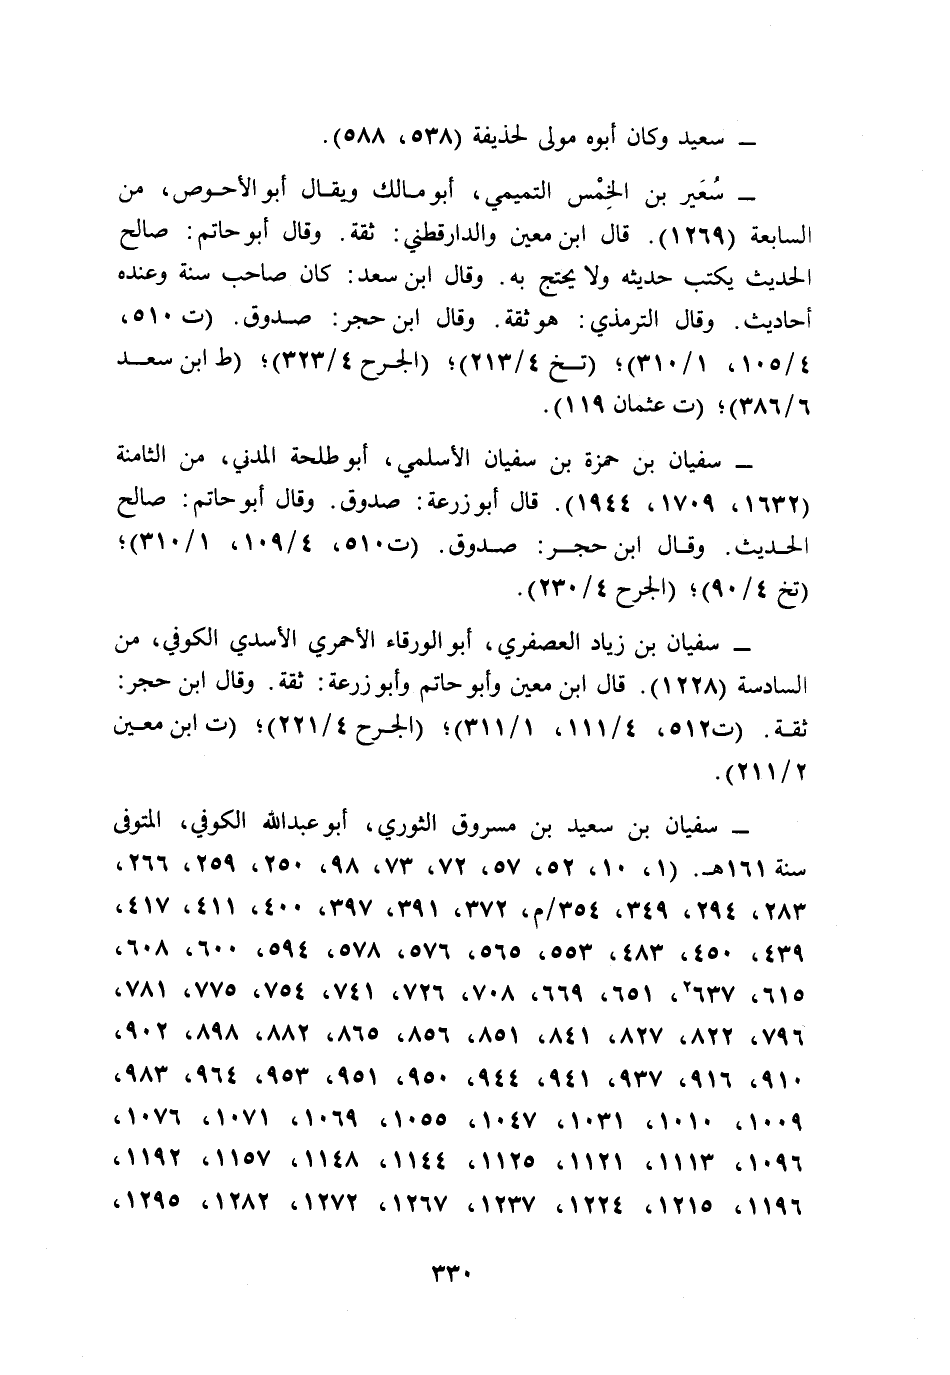 ــ سعيد وكان أبوه مولى لحذيفة (٥٣٨، ٥٨٨).
ــ سُعَير بن الخِمْس التميمي، أبو مالك ويقال أبو الأحوص، من
السابعة (١٢٦٩). قال ابن معين والدارقطني: ثقة. وقال أبو حاتم: صالح
الحديث يكتب حديثه ولا يحتج به. وقال ابن سعد: كان صاحب سنة وعنده
أحاديث. وقال الترمذي: هو ثقة. وقال ابن حجر: صدوق. (ت ٥١٠،
١٠٥/٤، ٣١٠/١)؛ (تخ ٢١٣/٤)؛ (الجرح ٣٢٣/٤)؛ (ط ابن سعد
٣٨٦/٦)؛ (ت عثمان ١١٩).
ــ سفيان بن حمزة بن سفيان الأسلمي، أبو طلحة المدني، من الثامنة
(١٦٣٢، ١٧٠٩، ١٩٤٤). قال أبو زرعة: صدوق. وقال أبو حاتم: صالح
الحديث. وقال ابن حجر: صدوق. (ت٥١٠، ١٠٩/٤، ٣١٠/١)؛
(تخ ٩٠/٤)؛ (الجرح ٢٣٠/٤).
ــ سفيان بن زياد العصفري، أبو الورقاء الأحمري الأسدي الكوفي، من
السادسة (١٢٢٨). قال ابن معين وأبو حاتم وأبو زرعة: ثقة. وقال ابن حجر:
ثقة. (ت٥١٢، ١١١/٤، ٣١١/١)؛ (الجرح ٢٢١/٤)؛ (ت ابن معين
٢١١/٢).
ــ سفيان بن سعيد بن مسروق الثوري، أبو عبدالله الكوفي، المتوفى
سنة ١٦١هـ. (١، ١٠، ٥٢، ٥٧، ٧٢، ٧٣، ٩٨، ٢٥٠، ٢٥٩، ٢٦٦،
٢٨٣، ٢٩٤، ٣٤٩، ٣٥٤/م، ٣٧٢، ٣٩١، ٣٩٧، ٤٠٠، ٤١١، ٤١٧،
٤٣٩، ٤٥٠، ٤٨٣، ٥٥٣، ٥٦٥، ٥٧٦، ٥٧٨، ٥٩٤، ٦٠٠، ٦٠٨،
٦١٥، ٦٣٧٢، ٦٥١، ٦٦٩، ٧٠٨، ٧٢٦، ٧٤١، ٧٥٤، ٧٧٥، ٧٨١،
٧٩٦، ٨٢٢، ٨٢٧، ٨٤١، ٨٥١، ٨٥٦، ٨٦٥، ٨٨٢، ٨٩٨، ٩٠٢،
٩١٠، ٩١٦، ٩٣٧، ٩٤١، ٩٤٤، ٩٥٠، ٩٥١، ٩٥٣، ٩٦٤، ٩٨٣،
١٠٠٩، ١٠١٠، ١٠٣١، ١٠٤٧، ١٠٥٥، ١٠٦٩، ١٠٧١، ١٠٧٦،
١٠٩٦، ١١١٣، ١١٢١، ١١٢٥، ١١٤٤، ١١٤٨، ١١٥٧، ١١٩٢،
١١٩٦، ١٢١٥، ١٢٢٤، ١٢٣٧، ١٢٦٧، ١٢٧٢، ١٢٨٢، ١٢٩٥،
٣٣٠